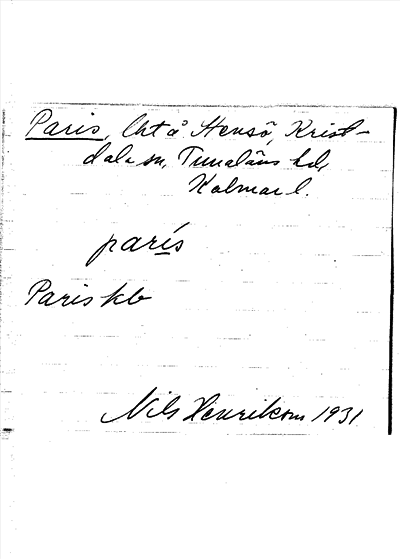 Paris, lht å Hensö, Krist-
dala sn, Tunaläns hd,
Kalmar l.
parís
Paris kb
Nils Henrikson 1931